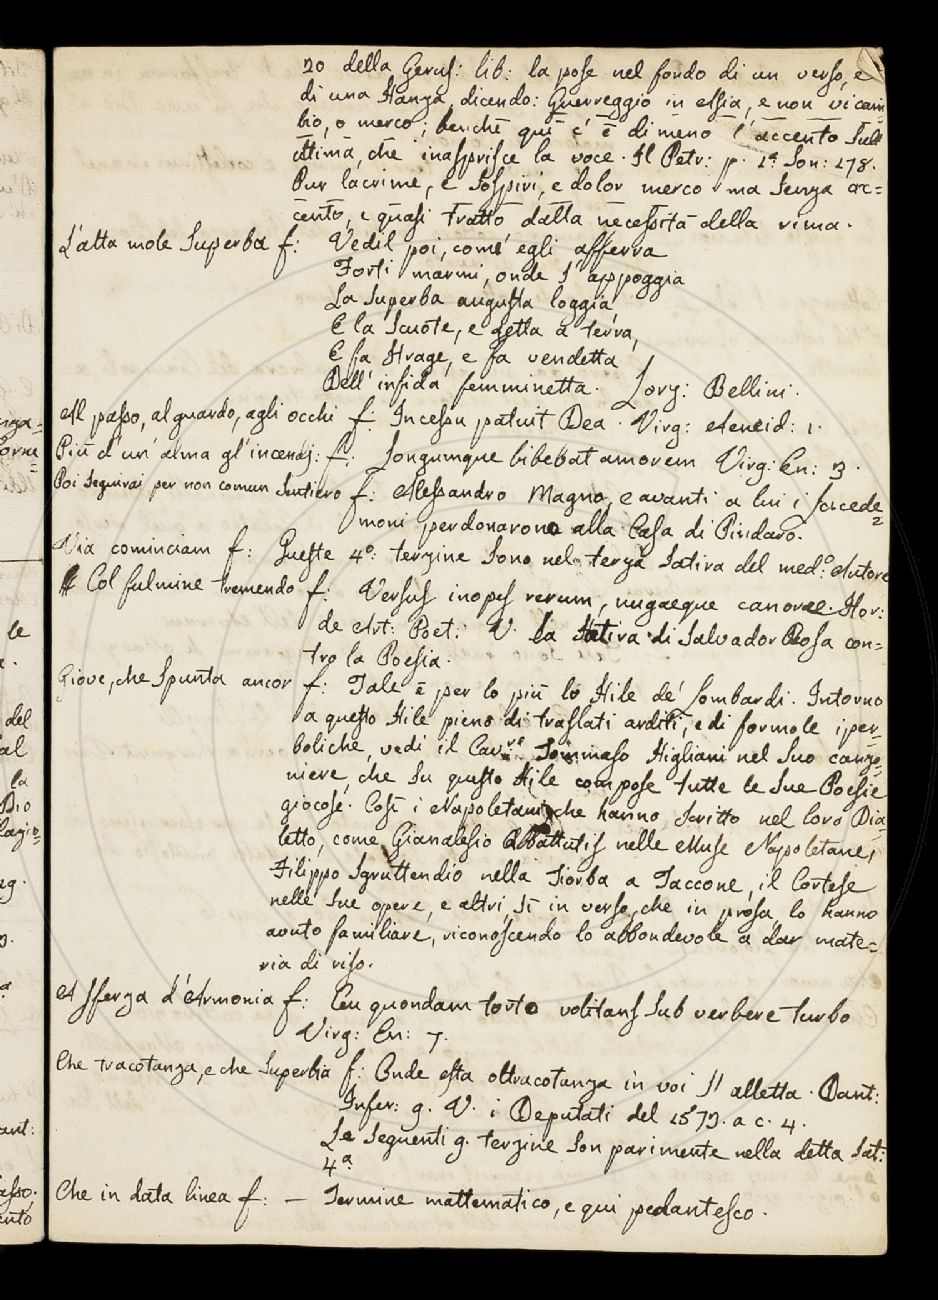 20 della Geruſ: lib: la poſe nel fondo di un verſo, e
di una Stanza, dicendo: Guerreggio in Aſia, e non vi cam-
bio, o merco; benchè qui c'è di meno l'accento Sull
ultima, che inaſpriſce la voce. Il Petr: p. 1ª Son: 178.
Pur lacrime, e Soſpiri, e dolor merco ma Senza ac=
cento, e quaſi tratto dalla neceſsità della rima.
L'alta mole Superba f: Vedil poi, com'egli afferra
Forti marmi, onde S'appoggia
La Superba auguſta loggia,
E la Scuote, e getta a terra,
E fa Strage, e fa vendetta
Dell'infida femminetta. Lorz: Bellini.
Al paſso, al guardo, agli occhi f: Inceſsu patuit Dea. Virg: Aeneid: 1.
Più d'un'alma gl'incendj: f: Longumque bibebat amorem Virg: En: 3.
Poi Seguirai per non comun Sentiero f: Aleſsandro Magno, e avanti a lui i Lacede=
moni perdonarono alla Caſa di Pindaro.
Via cominciam f: Queſte 4º: terzine Sono nela terza Satira del medº. Autore
Col fulmine tremendo f: Verſuſ inopeſ rerum, nugaeque canorae. Hor:
de Art: Poet: V. la Satira di Salvador Roſa con=
tro la Poeſia.
Giove, che Spunta ancor f: Tale è per lo più lo Stile de' Lombardi. Intorno
a queſto Stile pieno di traſlati arditi, e di formole iper=
boliche, vedi il Cavre. Tommaſo Stigliani nel Suo canzo=
niere, che Su queſto Stile compoſe tutte le Sue Poeſie
giocoſe. Coſì i Napoletani, che hanno Scritto nel loro Dia=
letto, come Gianaleſio Abbattutiſ nelle Muſe Napoletane,
Filippo Sgruttendio nella Tiorba a Taccone, il Corteſe
nelle Sue opere, e altri, Sì in verſo, che in proſa, lo hanno
avuto familiare, riconoſcendo lo abbondevole a dar mate=
ria di riſo.
A Sferza d'Armonia f: Ceu quondam torto volitanſ Sub verbere turbo
Virg: En: 7.
Che tracotanza, e che Superbia f: Onde eſta oltracotanza in voi S'alletta. Dant:
Infer: 9. V. i Deputati del 1573. a c. 4.
Le Seguenti 9. terzine Son parimente nella detta Sat:
4ª
Che in data linea f: — Termine mattematico, e qui pedanteſco.